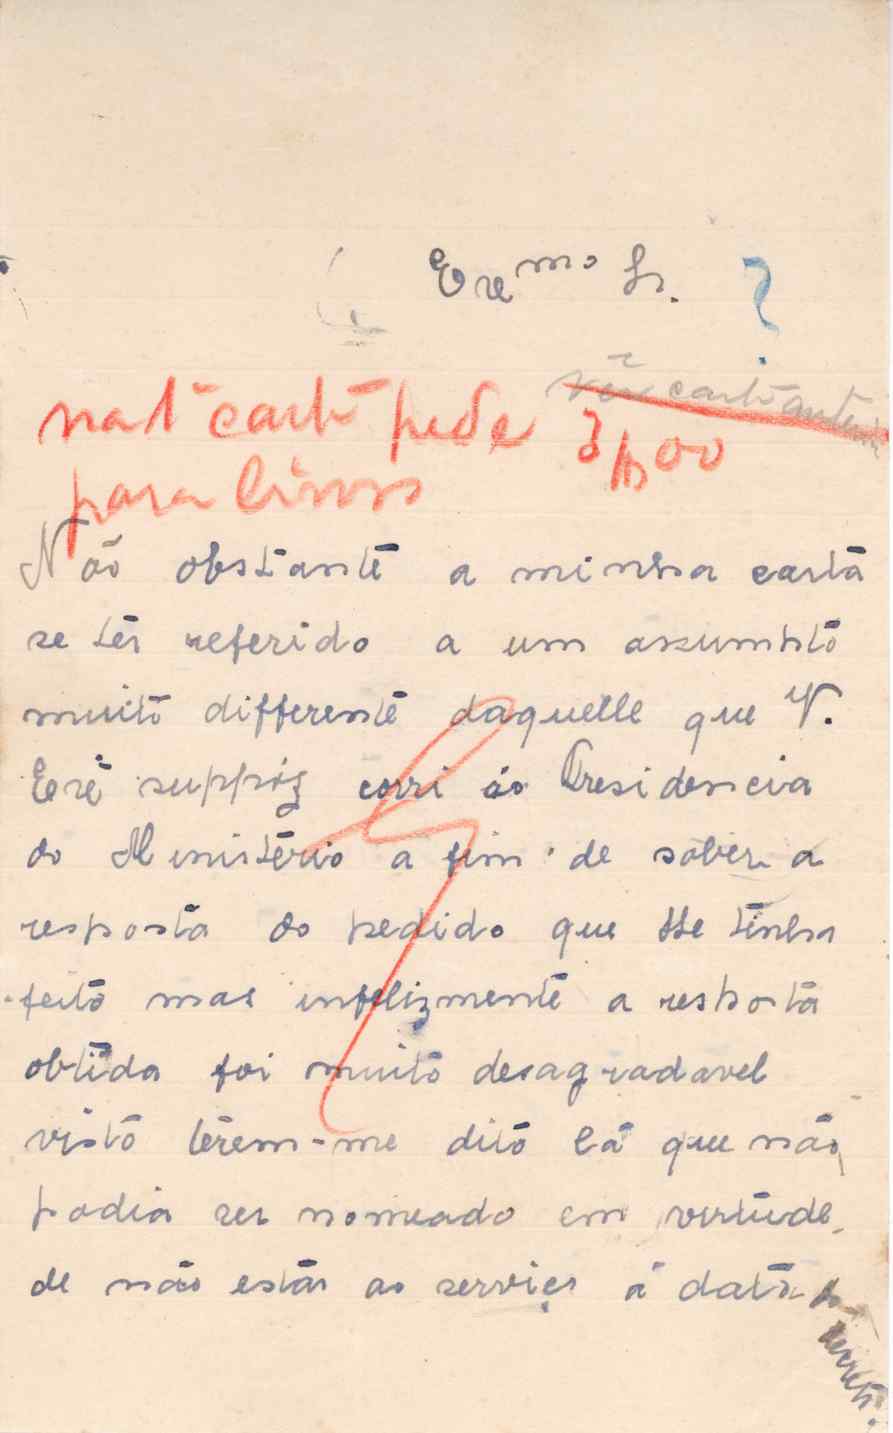 Exe mo Sr. ?
vêr carta anterior
na 1ª carta pede 3$00
para livros
Não obstante a minha carta
se ter referido a um assumpto
muito differente daquelle que V.
Exê suppôz corri áo Presidencia
do Ministério a fim de saber a
resposta do pedido que lhe tinha
feito mas infelizmente a resposta
obtida foi muito desagradavel
visto têrem-me dito lá que não
podia ser nomeado em virtude
de não estar ao serviço á data do
decreto.